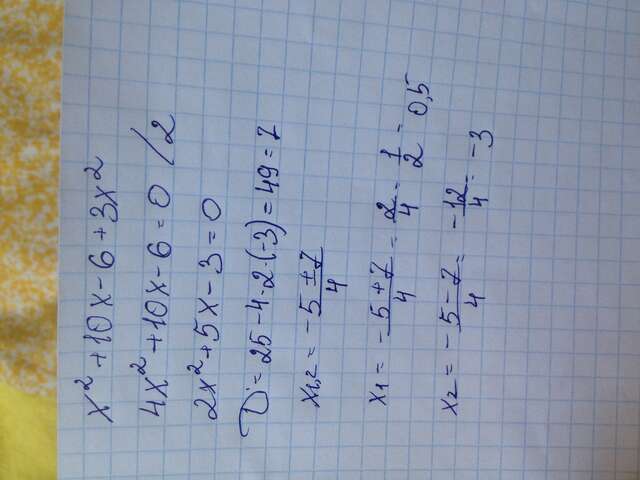 x² + 10x - 6 + 3x²
4x² + 10x - 6 = 0 /2
2x² + 5x - 3 = 0
D = 25 - 4·2·(-3) = 49 = 7
x₁,₂ = -5 ± 7 / 4
x₁ = -5 + 7 / 4 = 2/4 = 1/2 = 0,5
x₂ = -5 - 7 / 4 = -12/4 = -3